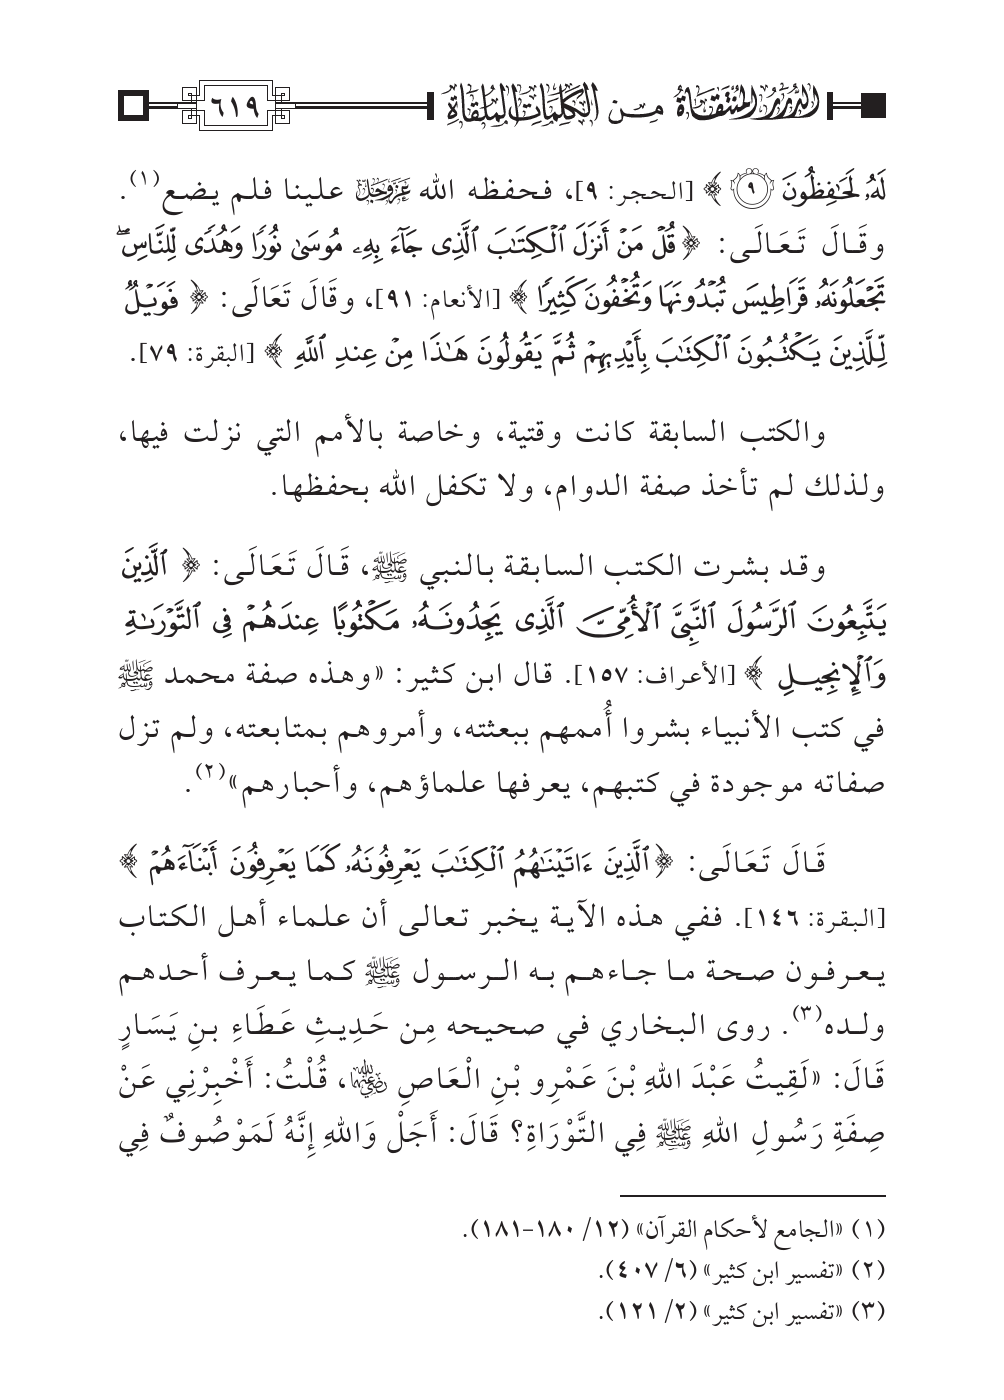 الدُّرَرُ المُنْتَقَاةُ مِن الكَلِمَاتِ المُلْقَاةِ ٦١٩
لَهُۥ لَحَٰفِظُونَ ٩ ﴾ [الحجر: ٩]، فحفظه الله عَزَّوَجَلَّ علينا فلم يضع(١).
وقَالَ تَعَالَى: ﴿ قُلْ مَنْ أَنزَلَ ٱلْكِتَٰبَ ٱلَّذِى جَآءَ بِهِۦ مُوسَىٰ نُورًا وَهُدًى لِّلنَّاسِ ۖ
تَجْعَلُونَهُۥ قَرَاطِيسَ تُبْدُونَهَا وَتُخْفُونَ كَثِيرًا ﴾ [الأنعام: ٩١]، وقَالَ تَعَالَى: ﴿ فَوَيْلٌ
لِّلَّذِينَ يَكْتُبُونَ ٱلْكِتَٰبَ بِأَيْدِيهِمْ ثُمَّ يَقُولُونَ هَٰذَا مِنْ عِندِ ٱللَّهِ ﴾ [البقرة: ٧٩].
والكتب السابقة كانت وقتية، وخاصة بالأمم التي نزلت فيها،
ولذلك لم تأخذ صفة الدوام، ولا تكفل الله بحفظها.
وقد بشرت الكتب السابقة بالنبي ﷺ، قَالَ تَعَالَى: ﴿ ٱلَّذِينَ
يَتَّبِعُونَ ٱلرَّسُولَ ٱلنَّبِىَّ ٱلْأُمِّىَّ ٱلَّذِى يَجِدُونَهُۥ مَكْتُوبًا عِندَهُمْ فِى ٱلتَّوْرَىٰةِ
وَٱلْإِنجِيلِ ﴾ [الأعراف: ١٥٧]. قال ابن كثير: «وهذه صفة محمد ﷺ
في كتب الأنبياء بشروا أُممهم ببعثته، وأمروهم بمتابعته، ولم تزل
صفاته موجودة في كتبهم، يعرفها علماؤهم، وأحبارهم»(٢).
قَالَ تَعَالَى: ﴿ ٱلَّذِينَ ءَاتَيْنَٰهُمُ ٱلْكِتَٰبَ يَعْرِفُونَهُۥ كَمَا يَعْرِفُونَ أَبْنَآءَهُمْ ﴾
[البقرة: ١٤٦]. ففي هذه الآية يخبر تعالى أن علماء أهل الكتاب
يعرفون صحة ما جاءهم به الرسول ﷺ كما يعرف أحدهم
ولده(٣). روى البخاري في صحيحه مِن حَدِيثِ عَطَاءِ بنِ يَسَارٍ
قَالَ: «لَقِيتُ عَبْدَ اللهِ بْنَ عَمْرِو بْنِ الْعَاصِ رَضِيَ اللهُ عَنْهُمَا، قُلْتُ: أَخْبِرْنِي عَنْ
صِفَةِ رَسُولِ اللهِ ﷺ فِي التَّوْرَاةِ؟ قَالَ: أَجَلْ وَاللهِ إِنَّهُ لَمَوْصُوفٌ فِي
(١) «الجامع لأحكام القرآن» (١٢/ ١٨٠-١٨١).
(٢) «تفسير ابن كثير» (٦/ ٤٠٧).
(٣) «تفسير ابن كثير» (٢/ ١٢١).